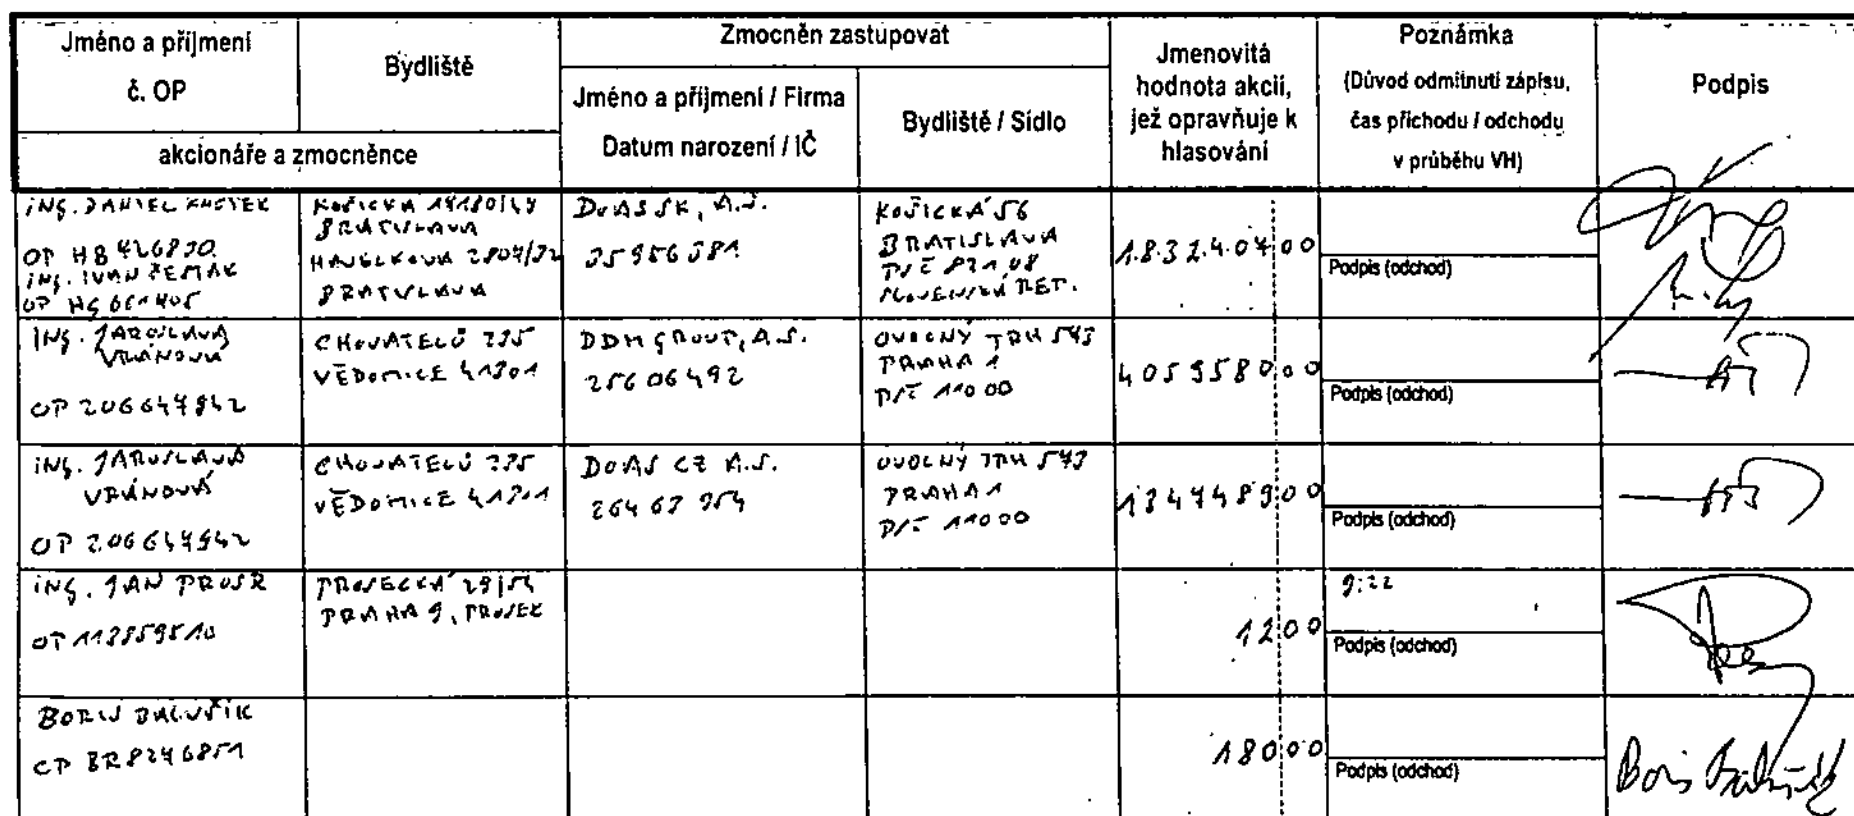 Jméno a příjmení
č. OP
Bydliště
Zmocněn zastupovat
Jméno a příjmení / Firma
Datum narození / IČ
Bydliště / Sídlo
Jmenovitá
hodnota akcií,
jež opravňuje k
hlasování
Poznámka
(Důvod odmítnutí zápisu,
čas příchodu / odchodu
v průběhu VH)
Podpis
akcionáře a zmocněnce
ING. DANIEL
OP HB 426830
ING. IVAN
OP HG
KOŠICKÁ
BRATISLAVA
2807/32
BRATISLAVA
DOAS SK, A.S.
35956381
KOŠICKÁ 56
BRATISLAVA
PSČ 821 08
SLOVENSKÁ REP.
1.8.3 2.4.0 7 0 0
Podpis (odchod)
ING. JAROSLAVA
VRÁNOVÁ
OP 206647842
CHOVATELŮ 235
VĚDOMICE 41301
DDM GROUP, A.S.
25606492
OVOCNÝ TRH 573
PRAHA 1
PSČ 11000
4 0 5 9 5 8 0 0 0
Podpis (odchod)
ING. JAROSLAVA
VRÁNOVÁ
OP
CHOVATELŮ 235
VĚDOMICE 41301
DOAS CZ A.S.
26463954
OVOCNÝ TRH 573
PRAHA 1
PSČ 11000
1 3 4 7 4 8 9 0 0
Podpis (odchod)
ING. JAN
OP 113859510
PROSECKÁ
PRAHA 9, PROSEK
1 2 0 0
9:22
Podpis (odchod)
BORIS BALUŠÍK
CP BR8246851
1 8 0 0 0
Podpis (odchod)
Boris Balušík